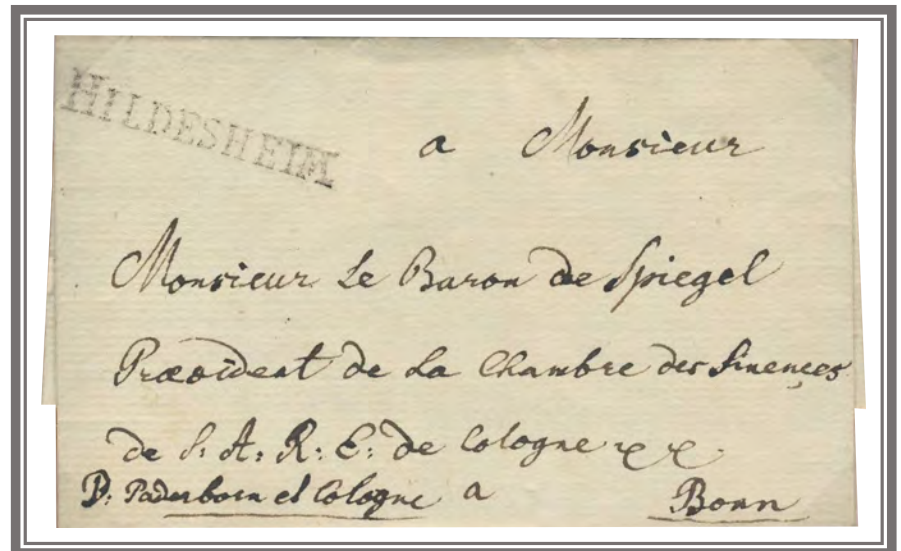 HILDESHEIM
a Monsieur
Monsieur Le Baron de Spiegel
Præsident de La Chambre des Finences
de S: A: R: E: de Cologne
P: Paderborn et Cologne a Bonn